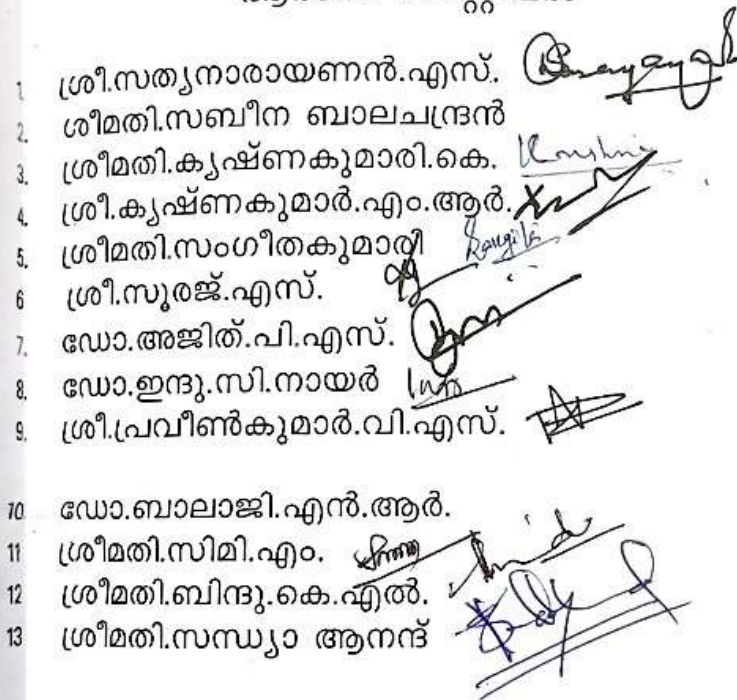 1. ശ്രീ.സത്യനാരായണൻ.എസ്.
2. ശീമതി.സബീന ബാലചന്ദ്രൻ
3. ശ്രീമതി.കൃഷ്ണകുമാരി.കെ.
4. ശ്രീ.കൃഷ്ണകുമാർ.എം.ആർ.
5. ശ്രീമതി.സംഗീതകുമാരി Sangita
6 ശ്രീ.സൂരജ്.എസ്.
7. ഡോ.അജിത്.പി.എസ്.
8. ഡോ.ഇന്ദു.സി.നായർ
9. ശ്രീ.പ്രവീൺകുമാർ.വി.എസ്.
10. ഡോ.ബാലാജി.എൻ.ആർ.
11 ശ്രീമതി.സിമി.എം.
12 ശ്രീമതി.ബിന്ദു.കെ.എൽ.
13 ശ്രീമതി.സന്ധ്യാ ആനന്ദ്